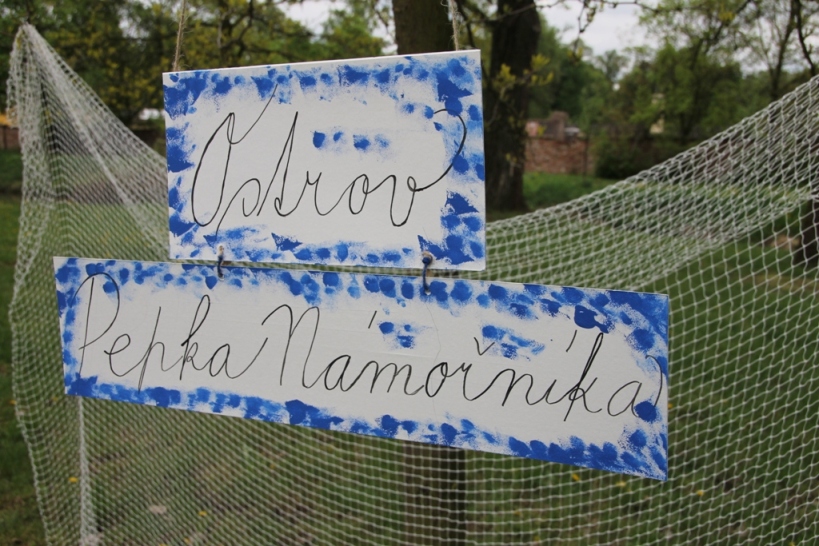 Ostrov
Pepka Námořníka